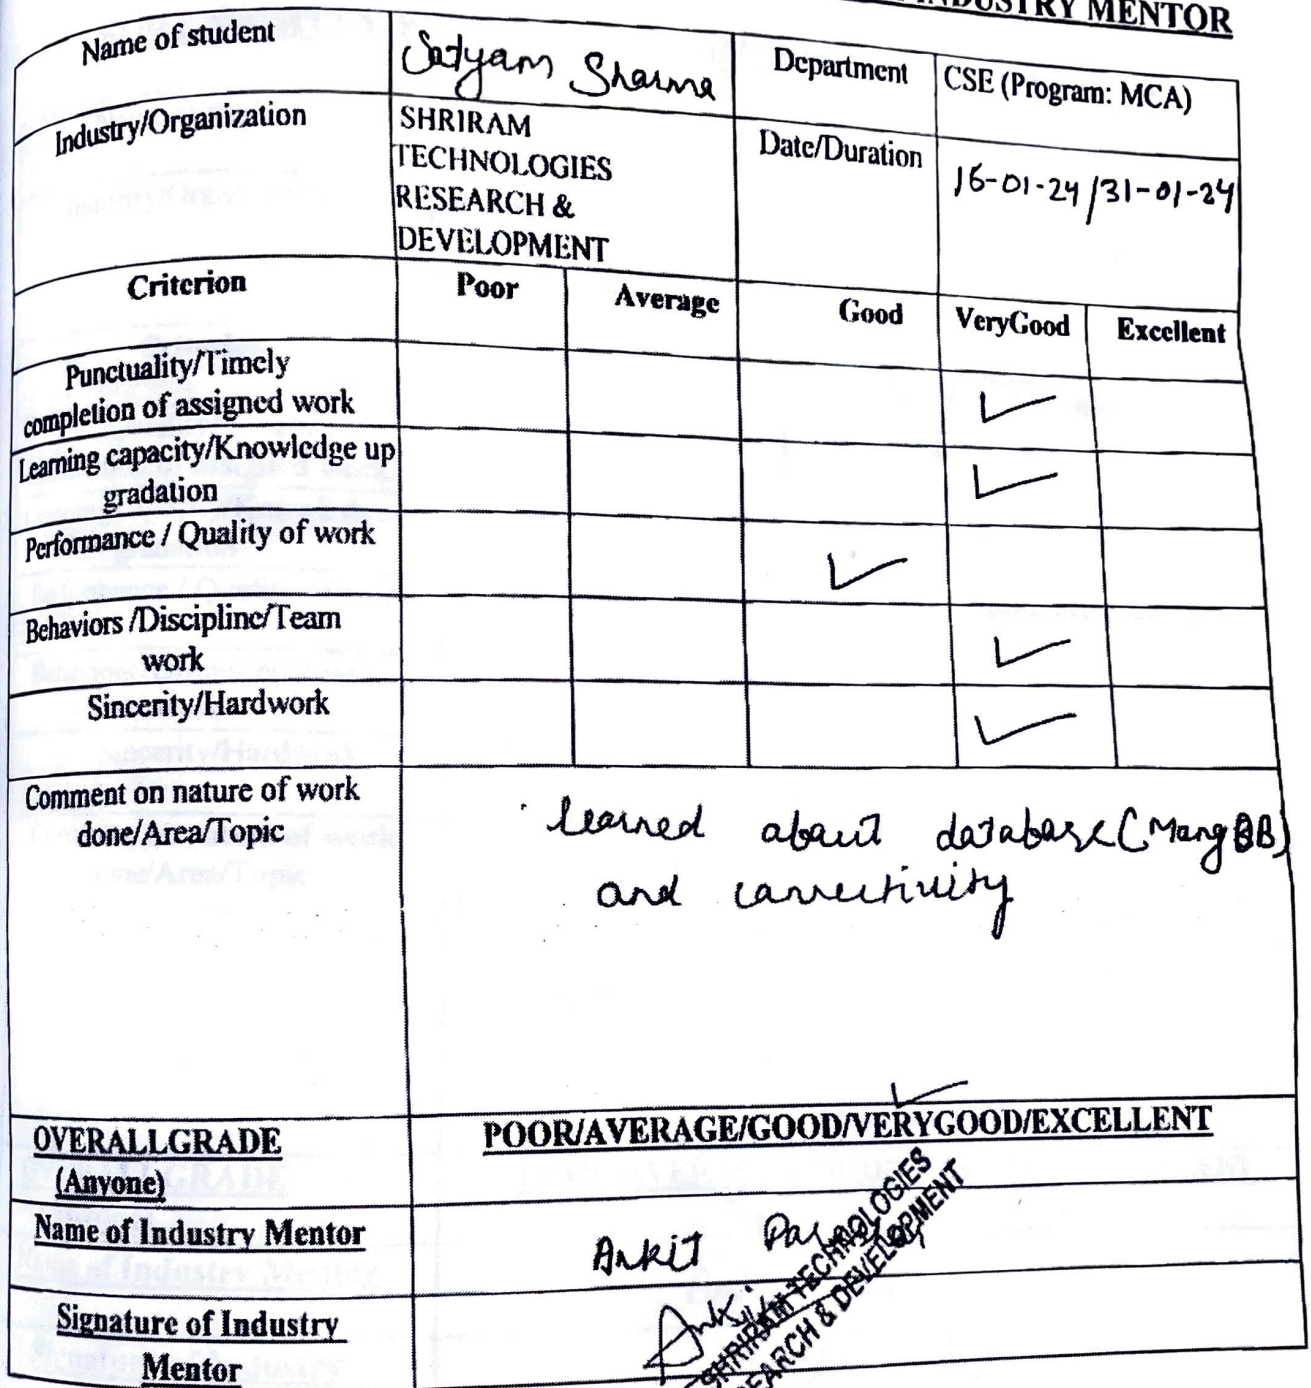 INDUSTRY MENTOR
Name of student
Satyam Sharma
Department
CSE (Program: MCA)
Industry/Organization
SHRIRAM
TECHNOLOGIES
RESEARCH &
DEVELOPMENT
Date/Duration
16-01-24/31-01-24
Criterion
Poor
Average
Good
VeryGood
Excellent
Punctuality/Timely
completion of assigned work
Learning capacity/Knowledge up
gradation
Performance / Quality of work
Behaviors /Discipline/Team
work
Sincerity/Hardwork
Comment on nature of work
done/Area/Topic
learned about database(MangoDB)
and connectivity
OVERALLGRADE
(Anyone)
POOR/AVERAGE/GOOD/VERYGOOD/EXCELLENT
Name of Industry Mentor
Ankit
Signature of Industry
Mentor
SHRIRAM TECHNOLOGIES
RESEARCH & DEVELOPMENT